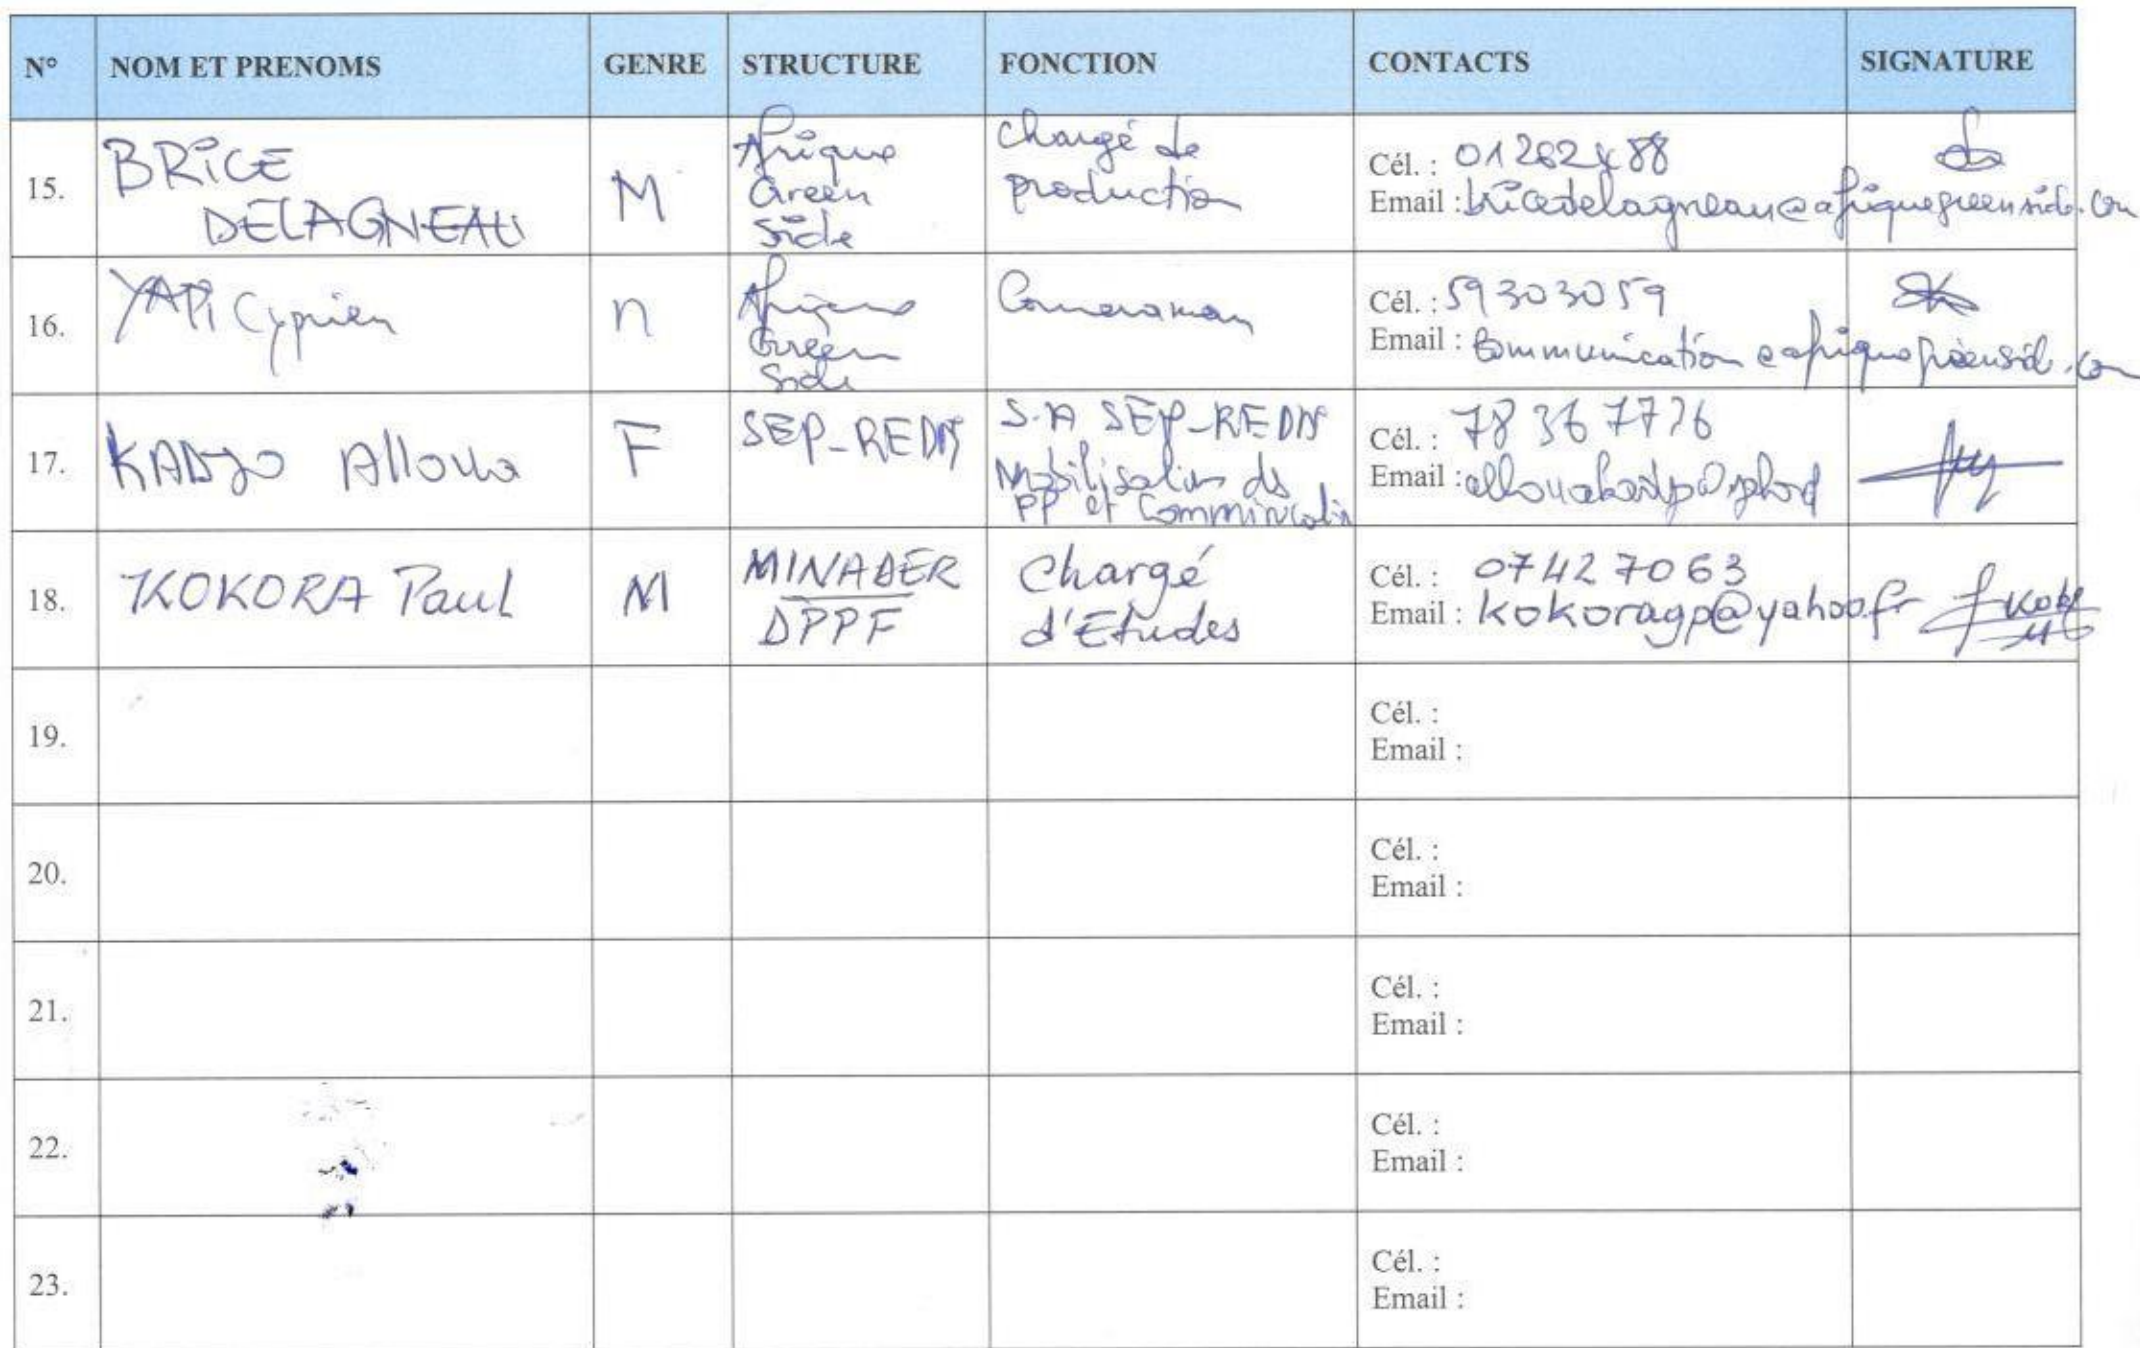 N° NOM ET PRENOMS GENRE STRUCTURE FONCTION CONTACTS SIGNATURE
15. BRiCE DELAGNEAU M Afrique Green Side Chargé de production Cél. : 01262488
Email : bricedelagneau@afriquegreenside.com
16. YAPi Cyprien M Afrique Green Side Cameraman Cél. : 59303059
Email : Communication@afriquegreenside.com
17. KADJO Alloua F SEP-REDD S.A SEP-REDD Mobilisation des PP et Communication Cél. : 78 36 7776
Email :
18. KOKORA Paul M MINADER DPPF Chargé d'Etudes Cél. : 07427063
Email : kokoragp@yahoo.fr
19. Cél. :
Email :
20. Cél. :
Email :
21. Cél. :
Email :
22. Cél. :
Email :
23. Cél. :
Email :